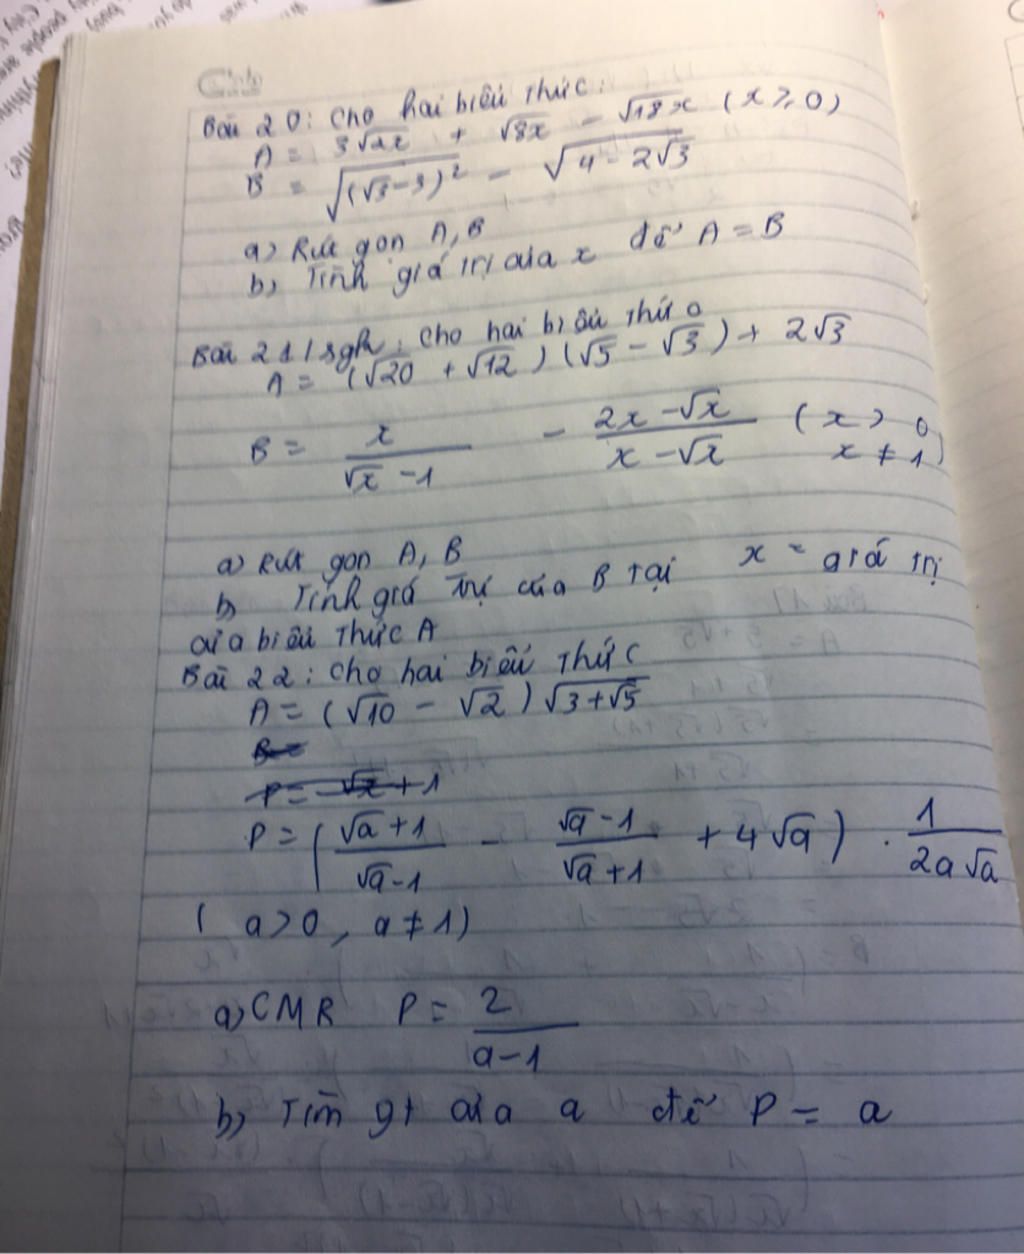 Bài 20: Cho hai biểu thức:
A = 3√2x + √8x - √18x (x ≥ 0)
B = √(√3-3)² - √4-2√3
a) Rút gọn A, B
b) Tính giá trị của x để A = B
Bài 21/sgk: Cho hai biểu thức
A = (√20 + √12)(√5 - √3) + 2√3
B = x/(√x - 1) - (2x - √x)/(x - √x) (x > 0, x ≠ 1)
a) Rút gọn A, B
b) Tính giá trị của B tại x = giá trị
của biểu thức A
Bài 22: Cho hai biểu thức
A = (√10 - √2)√3+√5
B =
P = √x + 1
P = ((√a + 1)/(√a - 1) - (√a - 1)/(√a + 1) + 4√a) . 1/(2a√a)
(a > 0, a ≠ 1)
a) CMR P = 2/(a - 1)
b) Tìm gt của a để P = a